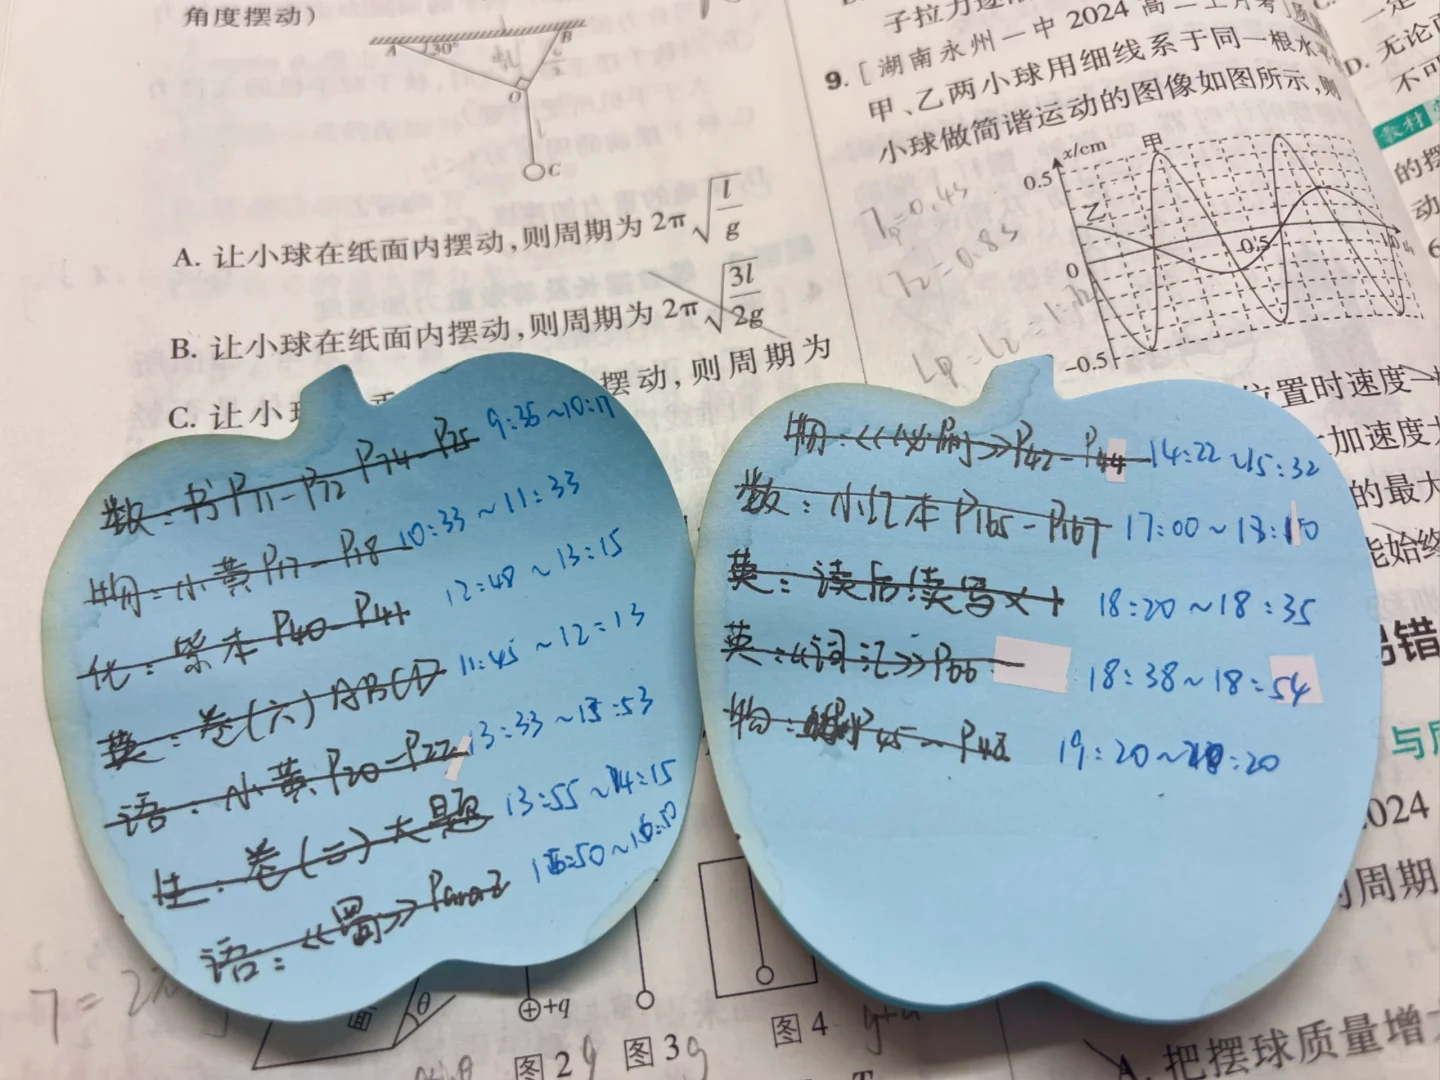 角度摆动)
A 30° B
O
l
C
A. 让小球在纸面内摆动,则周期为 2π√(l/g)
B. 让小球在纸面内摆动,则周期为 2π√(3l/2g)
C. 让小
摆动,则周期为
数:书P71-P72 P74-P75 9:35~10:17
物:小黄P17-P18 10:33~11:33
化:紫本P40-P41 12:48~13:15
英:卷(六)ABCD 11:45~12:13
语:小黄P20-P22 13:33~13:53
生:卷(二)大题 13:55~14:15
语:《蜀》Para2
面 θ
+q
图2
图3
图4
子拉力逐
9. [湖南永州一中2024高二上月考]
甲、乙两小球用细线系于同一根水平
小球做简谐运动的图像如图所示,则
x/cm
甲
0.5
乙
0
0.5
1.0
-0.5
T甲=0.4s
T乙=0.8s
物:《必刷》P42-P44 14:22~15:32
数:小红本P165-P167 17:00~18:10
英:读后续写×1 18:20~18:35
英:《词汇》P66 18:38~18:54
物: P45~P48 19:20~20:20
位置时速度
加速度
的最大
能始终
易错
2024
周期
A. 把摆球质量增
D. 无论
不可
教材
的摆
动